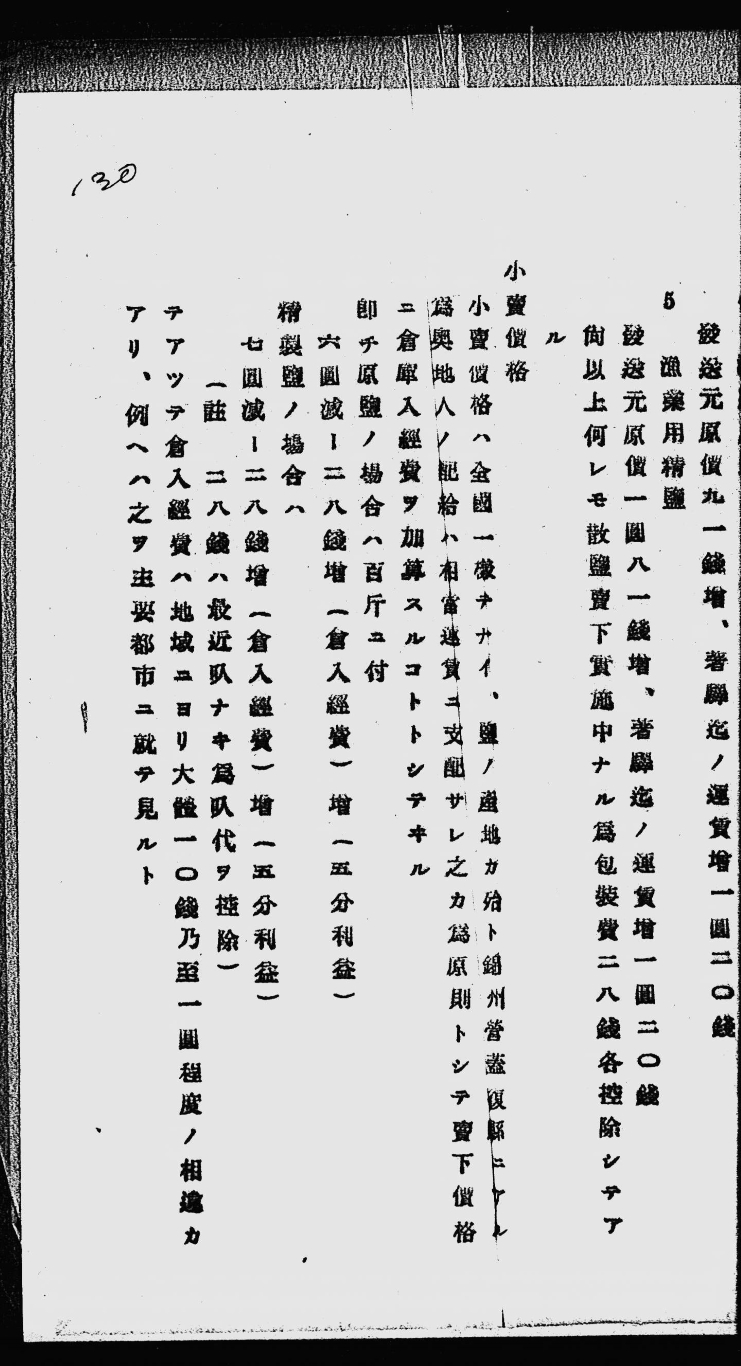 發送元原價九一錢增、著驛迄ノ運賃增一圓二〇錢
5 漁業用精鹽
發送元原價一圓八一錢增、著驛迄ノ運賃增一圓二〇錢
尙以上何レモ散鹽賣下實施中ナル爲包裝費二八錢各控除シテア
ル
小賣價格
小賣價格ハ全國一樣テナイ、鹽ノ產地カ殆ト錦州營蓋復縣ニアル
爲奧地人ノ配給ハ相當運賃ニ支配サレ之カ爲原則トシテ賣下價格
ニ倉庫入經費ヲ加算スルコトトシテヰル
卽チ原鹽ノ場合ハ百斤ニ付
六圓滅ー二八錢增(倉入經費)增(五分利益)
精製鹽ノ場合ハ
七圓滅ー二八錢增(倉入經費)增(五分利益)
(註 二八錢ハ最近叺ナキ爲叺代ヲ控除)
テアツテ倉入經費ハ地域ニヨリ大體一〇錢乃至一圓程度ノ相違カ
アリ、例ヘハ之ヲ主要都市ニ就テ見ルト
130